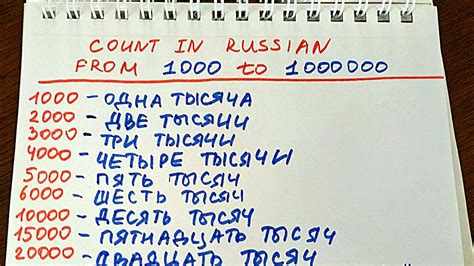 COUNT IN RUSSIAN
FROM 1000 to 1000000
1000 - ОДНА ТЫСЯЧА
2000 - ДВЕ ТЫСЯЧИ
3000 - ТРИ ТЫСЯЧИ
4000 - ЧЕТЫРЕ ТЫСЯЧИ
5000 - ПЯТЬ ТЫСЯЧ
6000 - ШЕСТЬ ТЫСЯЧ
10000 - ДЕСЯТЬ ТЫСЯЧ
15000 - ПЯТНАДЦАТЬ ТЫСЯЧ
20000 - ДВАДЦАТЬ ТЫСЯЧ